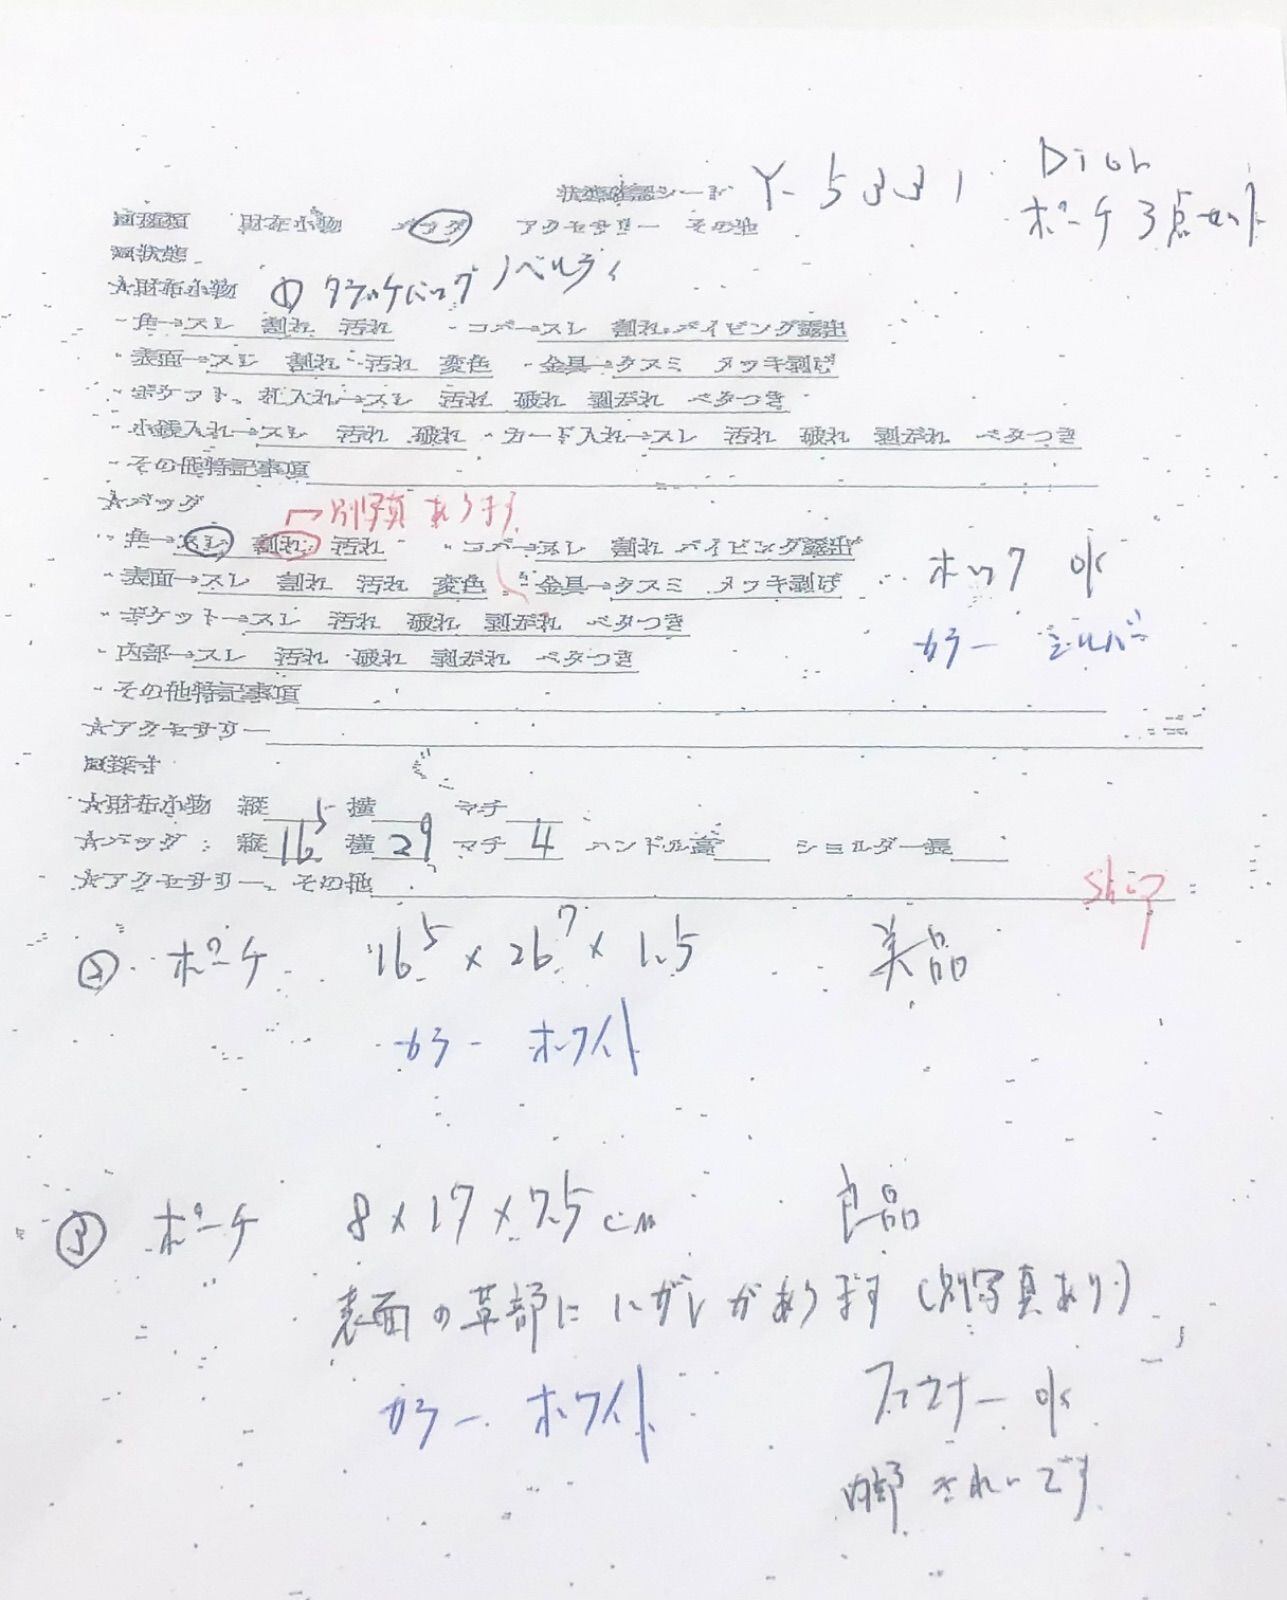 状態確認シート Y-5331 Dior
ポーチ3点セット
□種類 財布小物 バッグ アクセサリー その他
□状態
☆財布小物 ① クラッチバッグ ノベルティ
・角→スレ 割れ 汚れ ・コバ→スレ 割れ パイピング露出
・表面→スレ 割れ 汚れ 変色 ・金具→クスミ メッキ剥げ
・ポケット、札入れ→スレ 汚れ 破れ 剥がれ ベタつき
・小銭入れ→スレ 汚れ 破れ ・カード入れ→スレ 汚れ 破れ 剥がれ ベタつき
・その他特記事項
☆バッグ 別写真あります
・角→スレ 割れ 汚れ ・コバ→スレ 割れ パイピング露出
ホック ok
・表面→スレ 割れ 汚れ 変色 ・金具→クスミ メッキ剥げ
・ポケット→スレ 汚れ 破れ 剥がれ ベタつき
カラー シルバー
・内部→スレ 汚れ 破れ 剥がれ ベタつき
・その他特記事項
☆アクセサリー
□採寸
☆財布小物 縦 横 マチ
☆バッグ : 縦 16.5 横 29 マチ 4 ハンドル高 ショルダー長
☆アクセサリー、その他
② ポーチ 16.5 × 26.7 × 1.5 美品
カラー ホワイト
③ ポーチ 8×17×7.5cm 良品
表面の革部にハガレがあります(別写真あり)
カラー ホワイト
ファスナー ok
内部 きれいです